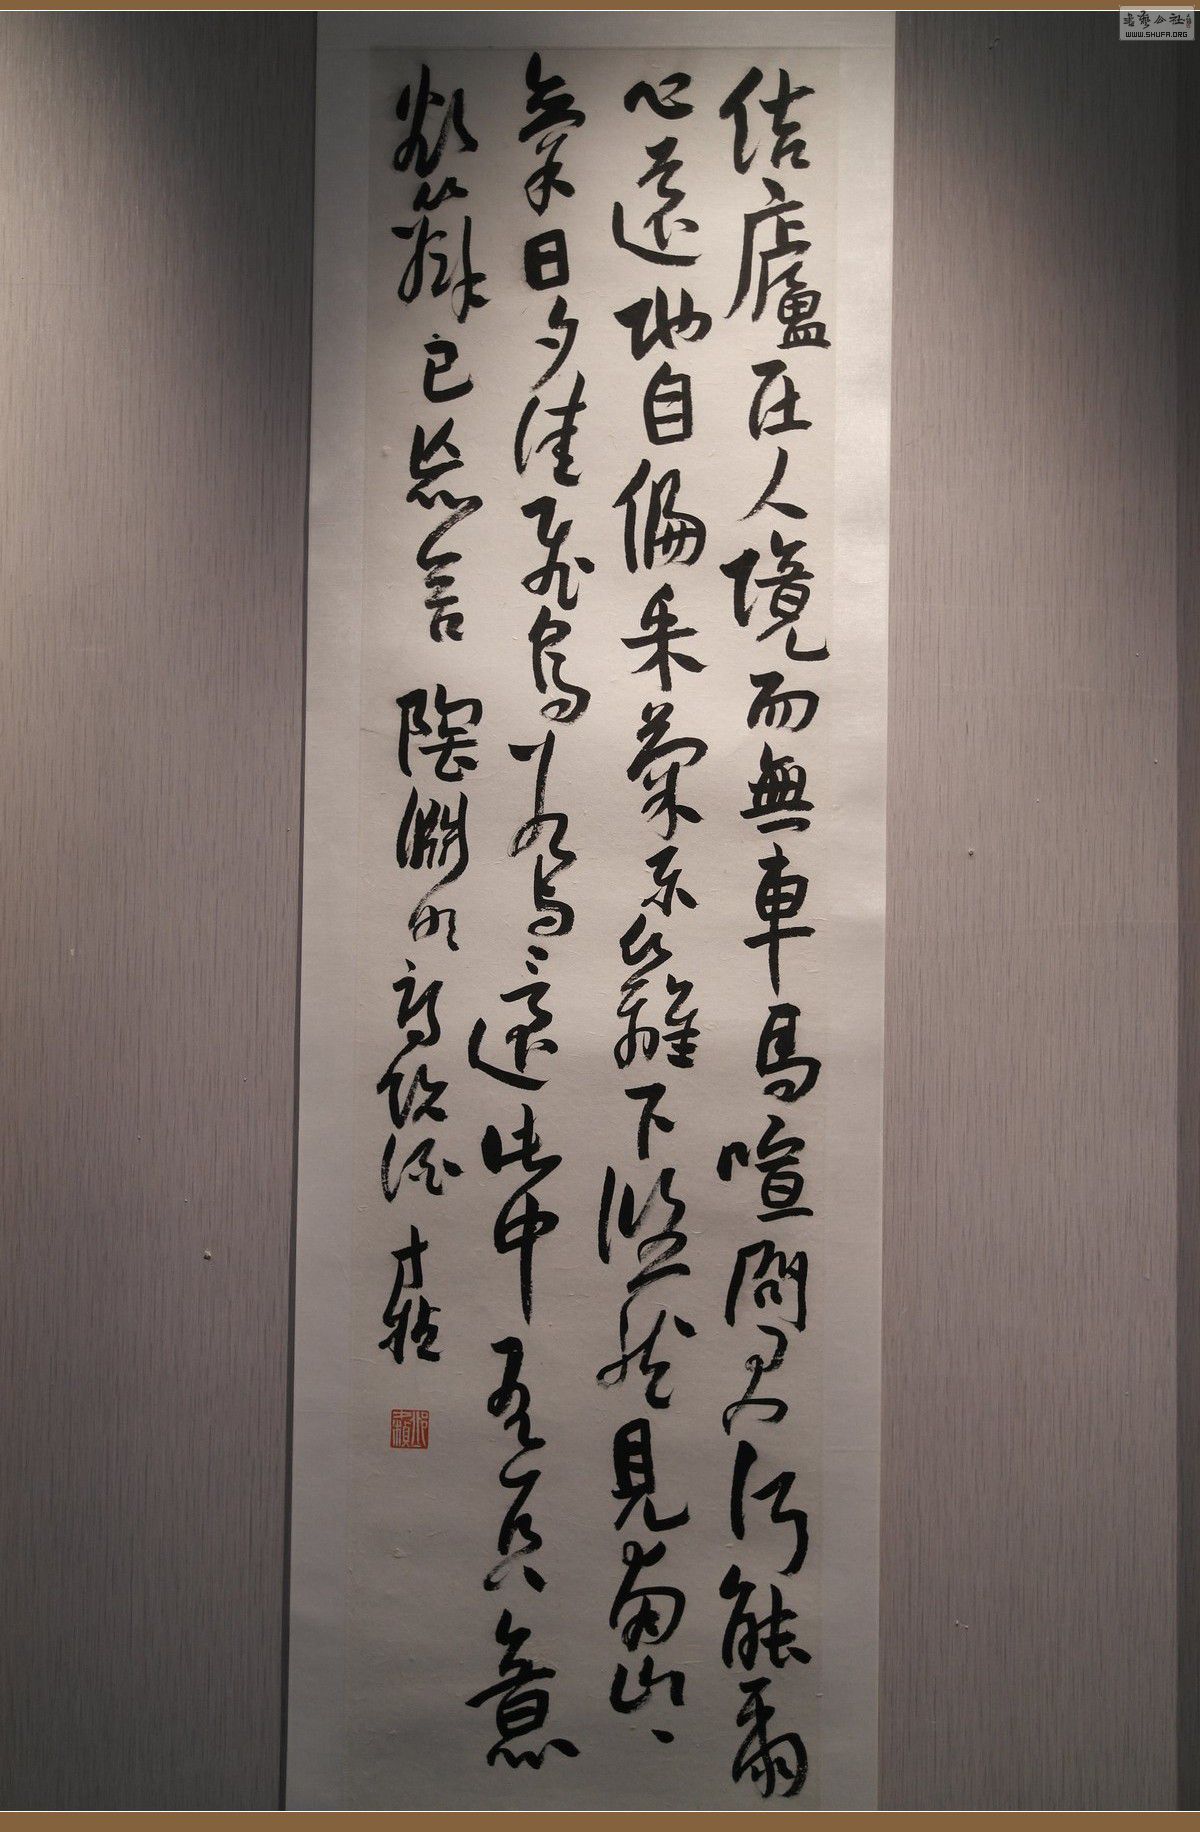 結廬在人境而無車馬喧問君何能爾
心遠地自偏采菊東籬下悠然見南山、
氣日夕佳飛鳥相與還此中有真意
欲辯已忘言 陶淵明詩飲酒 才楨
書藝公社
WWW.SHUFA.ORG